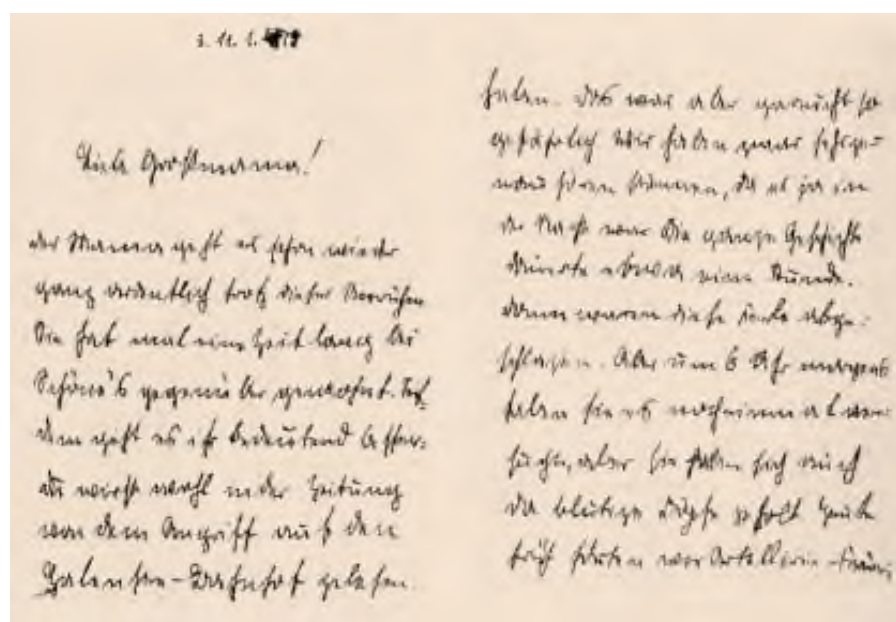 d. 11. 1.
Liebe Großmama!
der Mama geht es schon wieder
ganz ordentlich trotz dieser Unruhen
Sie hat mal eine Zeit lang bei
Schöne's gegenüber gewohnt. Seit
dem geht es ihr bedeutend besser.
du wirst wohl in der Zeitung
von dem Angriff auf den
Halensee-Bahnhof gelesen.
haben. das war aber garnicht so
gefährlich Wir haben zwar sehr ge-
nau hören können, da es ja in
der Nacht war Die ganze Geschichte
dauerte etwa eine Stunde.
dann waren diese Kerle abge-
schlagen. Aber um 6 Uhr morgens
haben sie es nocheinmal ver-
sucht, aber sie haben sich auch
da blutige Köpfe geholt Heute
früh hörten wir Artellerie-Feuer